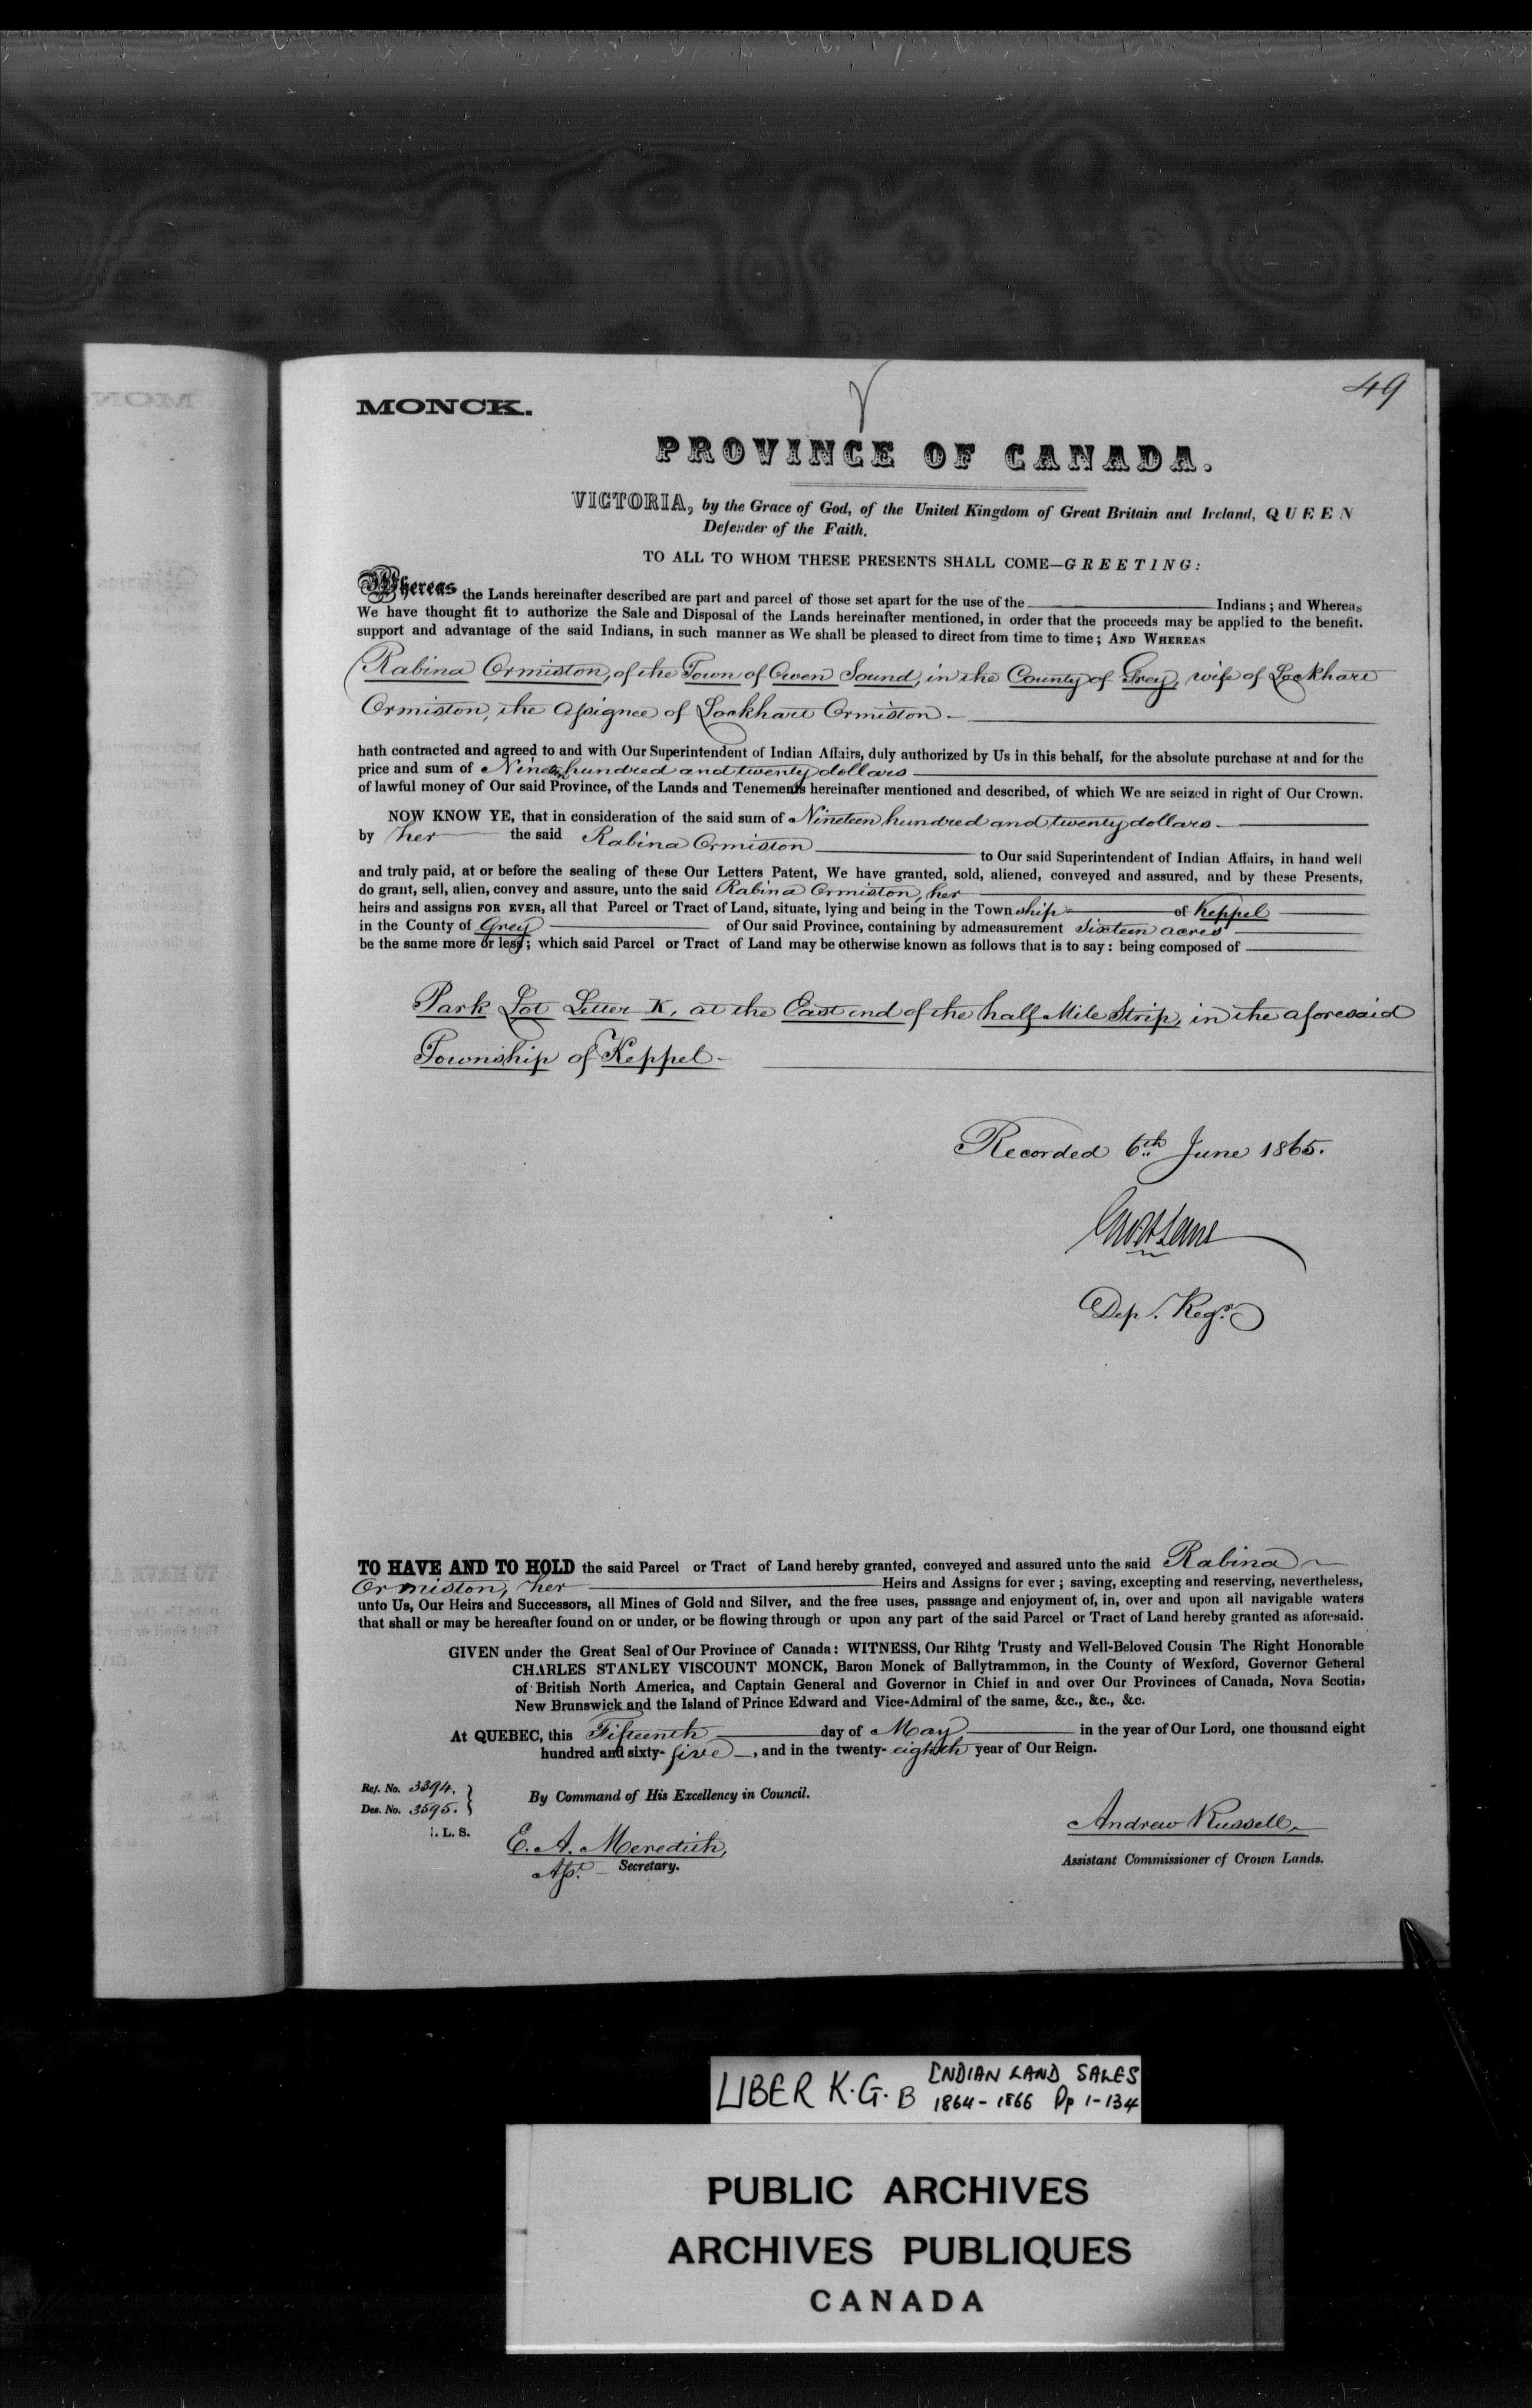 49
MONCK.
PROVINCE OF CANADA.
VICTORIA, by the Grace of God, of the United Kingdom of Great Britain and Ireland, QUEEN
Defender of the Faith.
TO ALL TO WHOM THESE PRESENTS SHALL COME—GREETING:
Whereas the Lands hereinafter described are part and parcel of those set apart for the use of the Indians; and Whereas
We have thought fit to authorize the Sale and Disposal of the Lands hereinafter mentioned, in order that the proceeds may be applied to the benefit.
support and advantage of the said Indians, in such manner as We shall be pleased to direct from time to time; AND WHEREAS
Rabina Ormiston, of the Town of Owen Sound, in the County of Grey, wife of Lockhart
Ormiston, the Assignee of Lockhart Ormiston
hath contracted and agreed to and with Our Superintendent of Indian Affairs, duly authorized by Us in this behalf, for the absolute purchase at and for the
price and sum of Nineteen hundred and twenty dollars
of lawful money of Our said Province, of the Lands and Tenements hereinafter mentioned and described, of which We are seized in right of Our Crown.
NOW KNOW YE, that in consideration of the said sum of Nineteen hundred and twenty dollars
by her the said Rabina Ormiston to Our said Superintendent of Indian Affairs, in hand well
and truly paid, at or before the sealing of these Our Letters Patent, We have granted, sold, aliened, conveyed and assured, and by these Presents,
do grant, sell, alien, convey and assure, unto the said Rabina Ormiston, her
heirs and assigns FOR EVER, all that Parcel or Tract of Land, situate, lying and being in the Township of Keppel
in the County of Grey of Our said Province, containing by admeasurement Sixteen acres
be the same more or less; which said Parcel or Tract of Land may be otherwise known as follows that is to say: being composed of
Park Lot Letter K, at the East end of the half Mile Strip, in the aforesaid
Township of Keppel
Recorded 6th June 1865.
Dep. Regr.
TO HAVE AND TO HOLD the said Parcel or Tract of Land hereby granted, conveyed and assured unto the said Rabina
Ormiston, her Heirs and Assigns for ever; saving, excepting and reserving, nevertheless,
unto Us, Our Heirs and Successors, all Mines of Gold and Silver, and the free uses, passage and enjoyment of, in, over and upon all navigable waters
that shall or may be hereafter found on or under, or be flowing through or upon any part of the said Parcel or Tract of Land hereby granted as aforesaid.
GIVEN under the Great Seal of Our Province of Canada: WITNESS, Our Rihtg Trusty and Well-Beloved Cousin The Right Honorable
CHARLES STANLEY VISCOUNT MONCK, Baron Monck of Ballytrammon, in the County of Wexford, Governor General
of British North America, and Captain General and Governor in Chief in and over Our Provinces of Canada, Nova Scotia,
New Brunswick and the Island of Prince Edward and Vice-Admiral of the same, &c., &c., &c.
At QUEBEC, this Fifteenth day of May in the year of Our Lord, one thousand eight
hundred and sixty-five, and in the twenty-eighth year of Our Reign.
Ref. No. 3394.
Des. No. 3595.
By Command of His Excellency in Council.
I. L. S.
E. A. Meredith,
Asst. Secretary.
Andrew Russell,
Assistant Commissioner of Crown Lands.
LIBER K.G. B INDIAN LAND SALES
1864-1866 Pp 1-134
PUBLIC ARCHIVES
ARCHIVES PUBLIQUES
CANADA